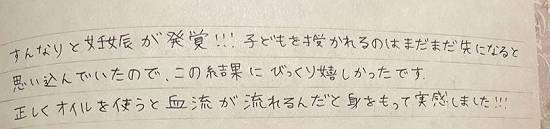 すんなりと妊娠が発覚!!! 子どもを授かれるのはまだまだ先になると
思い込んでいたので、この結果にびっくり嬉しかったです.
正しくオイルを使うと血流が流れるんだと身をもって実感しました!!!